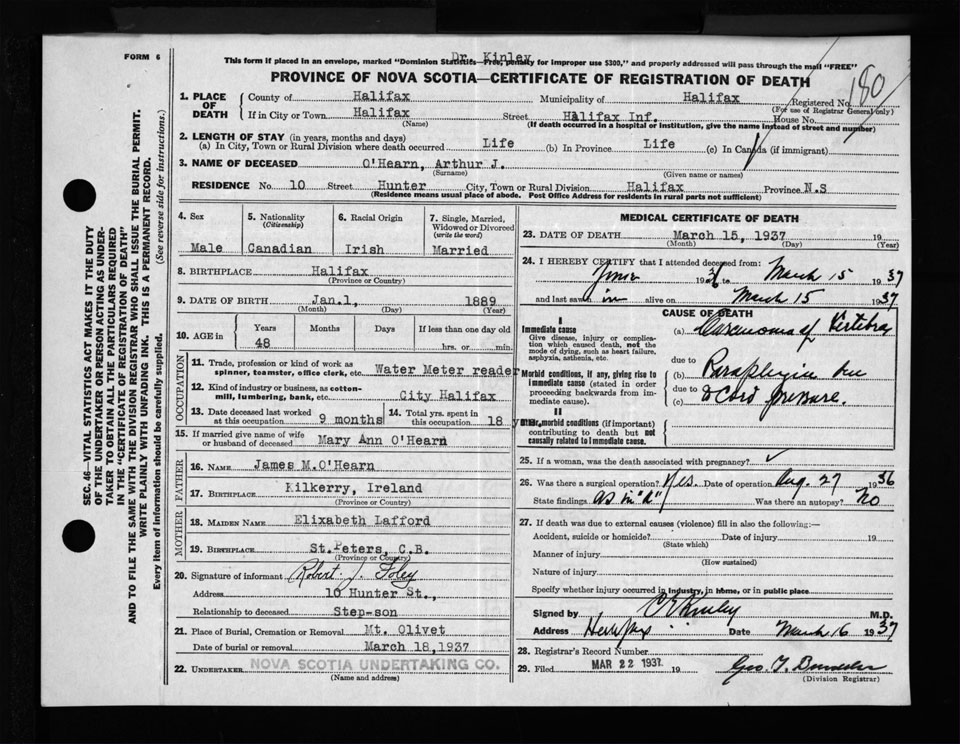 FORM 6
Dr. Kinley
This form if placed in an envelope, marked "Dominion Statistics—Free, penalty for improper use $300," and properly addressed will pass through the mail "FREE"
PROVINCE OF NOVA SCOTIA—CERTIFICATE OF REGISTRATION OF DEATH
180
1. PLACE OF DEATH
County of Halifax Municipality of Halifax Registered No.
(For use of Registrar General only)
If in City or Town Halifax Street Halifax Inf. House No.
(Name) (If death occurred in a hospital or institution, give the name instead of street and number)
2. LENGTH OF STAY (in years, months and days)
(a) In City, Town or Rural Division where death occurred Life (b) In Province Life (c) In Canada (if immigrant)
3. NAME OF DECEASED O'Hearn, Arthur J.
(Surname) (Given name or names)
RESIDENCE No. 10 Street Hunter City, Town or Rural Division Halifax Province N.S
(Residence means usual place of abode. Post Office Address for residents in rural parts not sufficient)
4. Sex
Male
5. Nationality
(Citizenship)
Canadian
6. Racial Origin
Irish
7. Single, Married, Widowed or Divorced
(write the word)
Married
8. BIRTHPLACE Halifax
(Province or Country)
9. DATE OF BIRTH Jan.1, 1889
(Month) (Day) (Year)
10. AGE in Years Months Days If less than one day old
48 hrs. or min.
OCCUPATION
11. Trade, profession or kind of work as
spinner, teamster, office clerk, etc. Water Meter reader
12. Kind of industry or business, as cotton-
mill, lumbering, bank, etc. City Halifax
13. Date deceased last worked
at this occupation 9 months
14. Total yrs. spent in
this occupation 18 years
15. If married give name of wife
or husband of deceased Mary Ann O'Hearn
FATHER
16. NAME James M.O'Hearn
17. BIRTHPLACE Kilkerry, Ireland
MOTHER
18. MAIDEN NAME Elixabeth Lafford
19. BIRTHPLACE St.Peters, C.B.
(Province or Country)
20. Signature of informant Robert J. Foley
Address 10 Hunter St.,
Relationship to deceased Step-son
21. Place of Burial, Cremation or Removal Mt. Olivet
Date of burial or removal March 18,1937
22. UNDERTAKER NOVA SCOTIA UNDERTAKING CO.
(Name and address)
MEDICAL CERTIFICATE OF DEATH
23. DATE OF DEATH March 15, 1937
(Month) (Day) (Year)
24. I HEREBY CERTIFY that I attended deceased from:
1936 to March 15 1937
and last saw him alive on March 15 1937
CAUSE OF DEATH
I
Immediate cause
Give disease, injury or complica-
tion which caused death, not the
mode of dying, such as heart failure,
asphyxia, asthenia, etc.
(a) Carcinoma of Vertebra
due to
Morbid conditions, if any, giving rise to
immediate cause (stated in order
proceeding backwards from im-
mediate cause).
(b) Paraplegia due
due to
(c) to Cord pressure.
II
Other morbid conditions (if important)
contributing to death but not
causally related to immediate cause.
25. If a woman, was the death associated with pregnancy?
26. Was there a surgical operation? Yes. Date of operation Aug. 27 1936
State findings as in "a" Was there an autopsy? No
27. If death was due to external causes (violence) fill in also the following:—
Accident, suicide or homicide? Date of injury 19
(State which)
Manner of injury
(How sustained)
Nature of injury
Specify whether injury occurred in industry, in home, or in public place
Signed by C E Kinley M.D.
Address Halifax Date March 16 1937
28. Registrar's Record Number
29. Filed MAR 22 1937 19
(Division Registrar)
SEC. 46—VITAL STATISTICS ACT MAKES IT THE DUTY
OF THE UNDERTAKER OR PERSON ACTING AS UNDER-
TAKER TO OBTAIN ALL THE PARTICULARS REQUIRED
IN THE "CERTIFICATE OF REGISTRATION OF DEATH"
AND TO FILE THE SAME WITH THE DIVISION REGISTRAR WHO SHALL ISSUE THE BURIAL PERMIT.
WRITE PLAINLY WITH UNFADING INK. THIS IS A PERMANENT RECORD.
Every item of information should be carefully supplied. (See reverse side for instructions.)